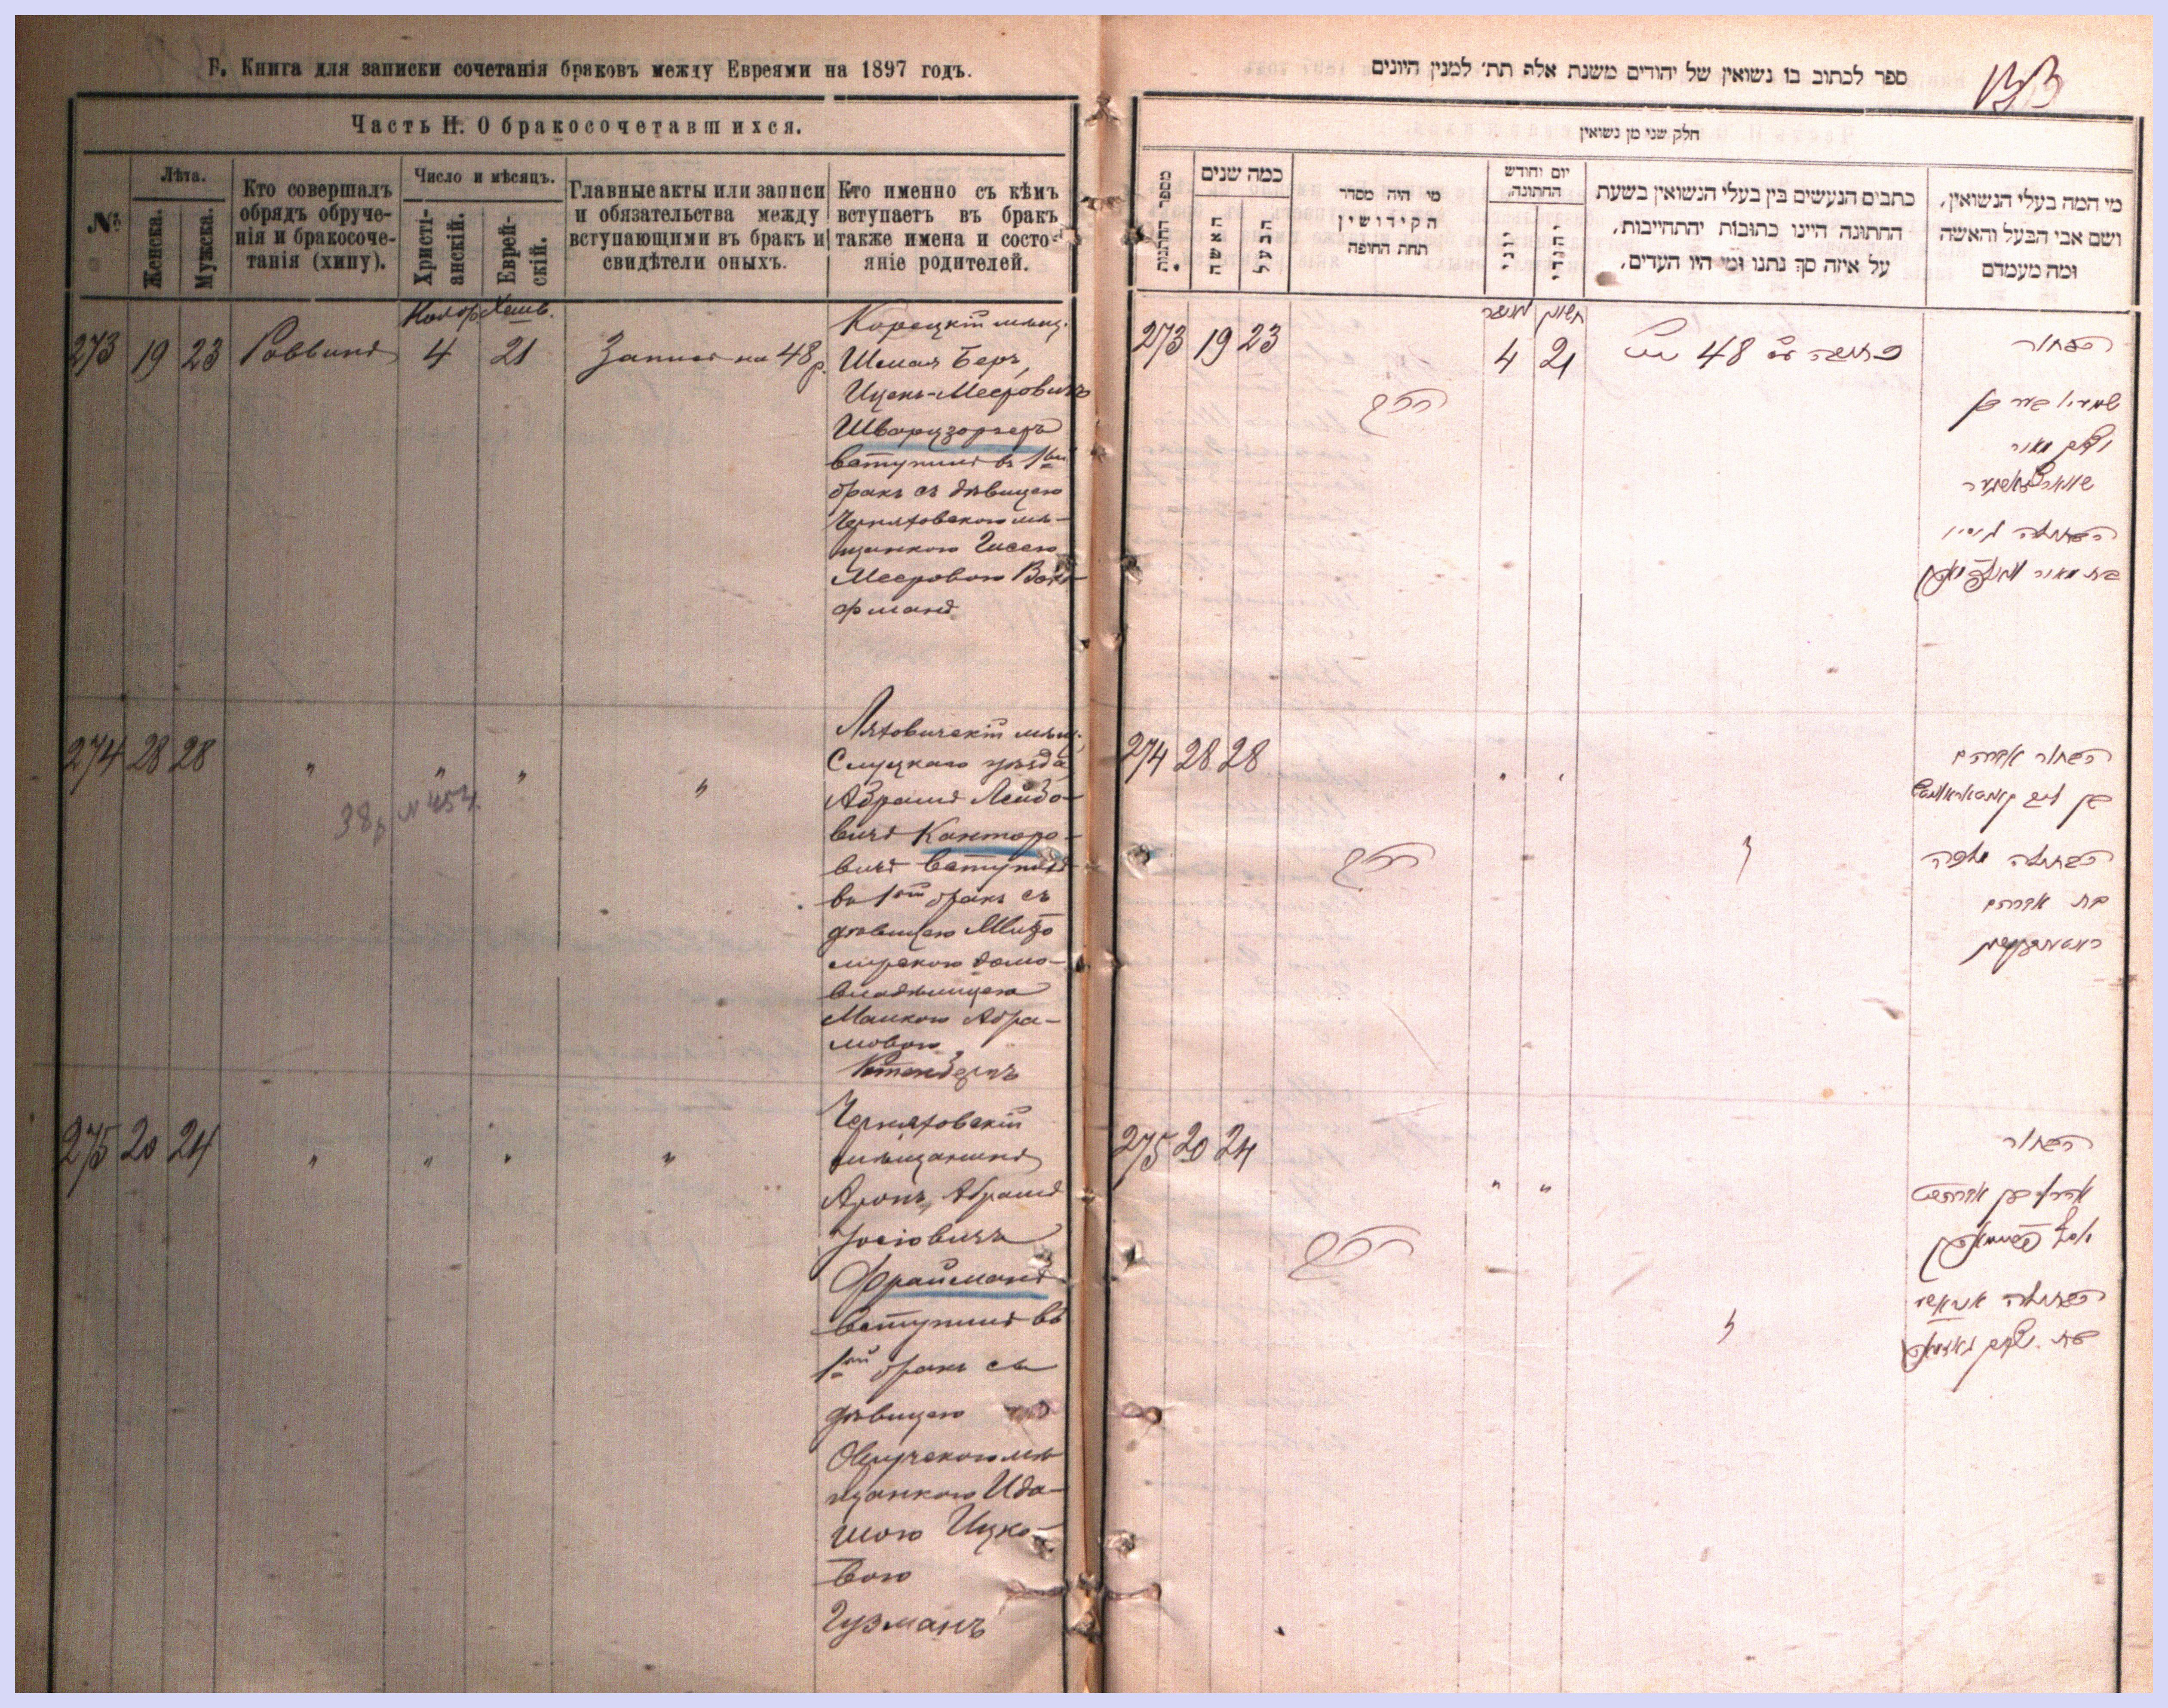 Б. Книга для записки сочетанія браковъ между Евреями на 1897 годъ.
Часть II. О бракосочетавшихся.
№
Лѣта.
Женска.
Мужска.
Кто совершалъ
обрядъ обруче-
нія и бракосоче-
танія (хипу).
Число и мѣсяцъ.
Христі-
анскій.
Еврей-
скій.
Главные акты или записи
и обязательства между
вступающими въ бракъ и
свидѣтели оныхъ.
Кто именно съ кѣмъ
вступаетъ въ бракъ
также имена и состо-
яніе родителей.
Хешв.
273 19 23 Раввинъ 4 21 Запись на 48 р.
Корецкій мѣщ.
Шмая Беръ,
Ицекъ-Мееровичъ
Шварцзоргеръ
вступилъ въ 1ый
бракъ съ дѣвицею
Черняховскою мѣ-
щанкою
Мееровою
274 28 28 " " " "
38 р № 454.
Ляховичскій мѣщ.
Слуцкаго уѣзда
Абрамъ Лейбо-
вичъ Канторо-
вичъ вступилъ
въ 1ый бракъ съ
дѣвицею Жито-
мирскою домо-
владѣлицею
Малкою Абра-
мовою
Ротенбергъ
275 20 24 " " " "
Черняховскій
мѣщанинъ
Аронъ, Абрамъ
Іосіовичъ
Фрайманъ
вступилъ въ
1ый бракъ съ
дѣвицею
Овручскою мѣ
щанкою Ида-
шою Ицко-
вою
Гузманъ
ספר לכתוב בו נשואין של יהודים משנת אלף תת׳ למנין היונים
חלק שני מן נשואין
מספר החתונות
כמה שנים
האשה
הבעל
מי היה מסדר
הקידושין
תחת החופה
יום וחודש
החתונה
יוני
יהודי
כתבים הנעשים בין בעלי הנשואין בשעת
החתונה היינו כתובות והתחייבות,
על איזה סך נתנו ומי היו העדים,
מי המה בעלי הנשואין,
ושם אבי הבעל והאשה
ומה מעמדם
חשון
273 19 23 4 21 48
הבחור
הרב
שמעי׳ בער בן
איצק מאיר
הבתולה
בת מאיר
274 28 28
הבחור אברהם
בן ליב קאנטאראוויטש
הרב
הבתולה מלכה
בת אברהם
275 20 24 " "
הבחור
אהרן בן אברהם
הרב
הבתולה